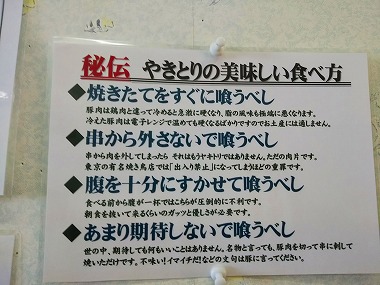 秘伝 やきとりの美味しい食べ方
◆焼きたてをすぐに喰うべし
豚肉は鶏肉と違って冷めると急激に硬くなり、脂の風味も極端に悪くなります。
冷えた豚肉は電子レンジで温めても硬くなるばかりですのでお土産には適しません。
◆串から外さないで喰うべし
串から肉を外してしまったら それはもうヤキトリではありません。ただの肉片です。
東京の有名焼き鳥店では「出入り禁止」になってしまうほどの重罪です。
◆腹を十分にすかせて喰うべし
食べる前から腹が一杯ではこちらが圧倒的に不利です。
朝食を抜いて来るくらいのガッツと優しさが必要です。
◆あまり期待しないで喰うべし
世の中、期待しても何もいいことはありません。名物と言っても、豚肉を切って串に刺して
焼いただけです。不味い!イマイチだ!などの文句は豚に言ってください。